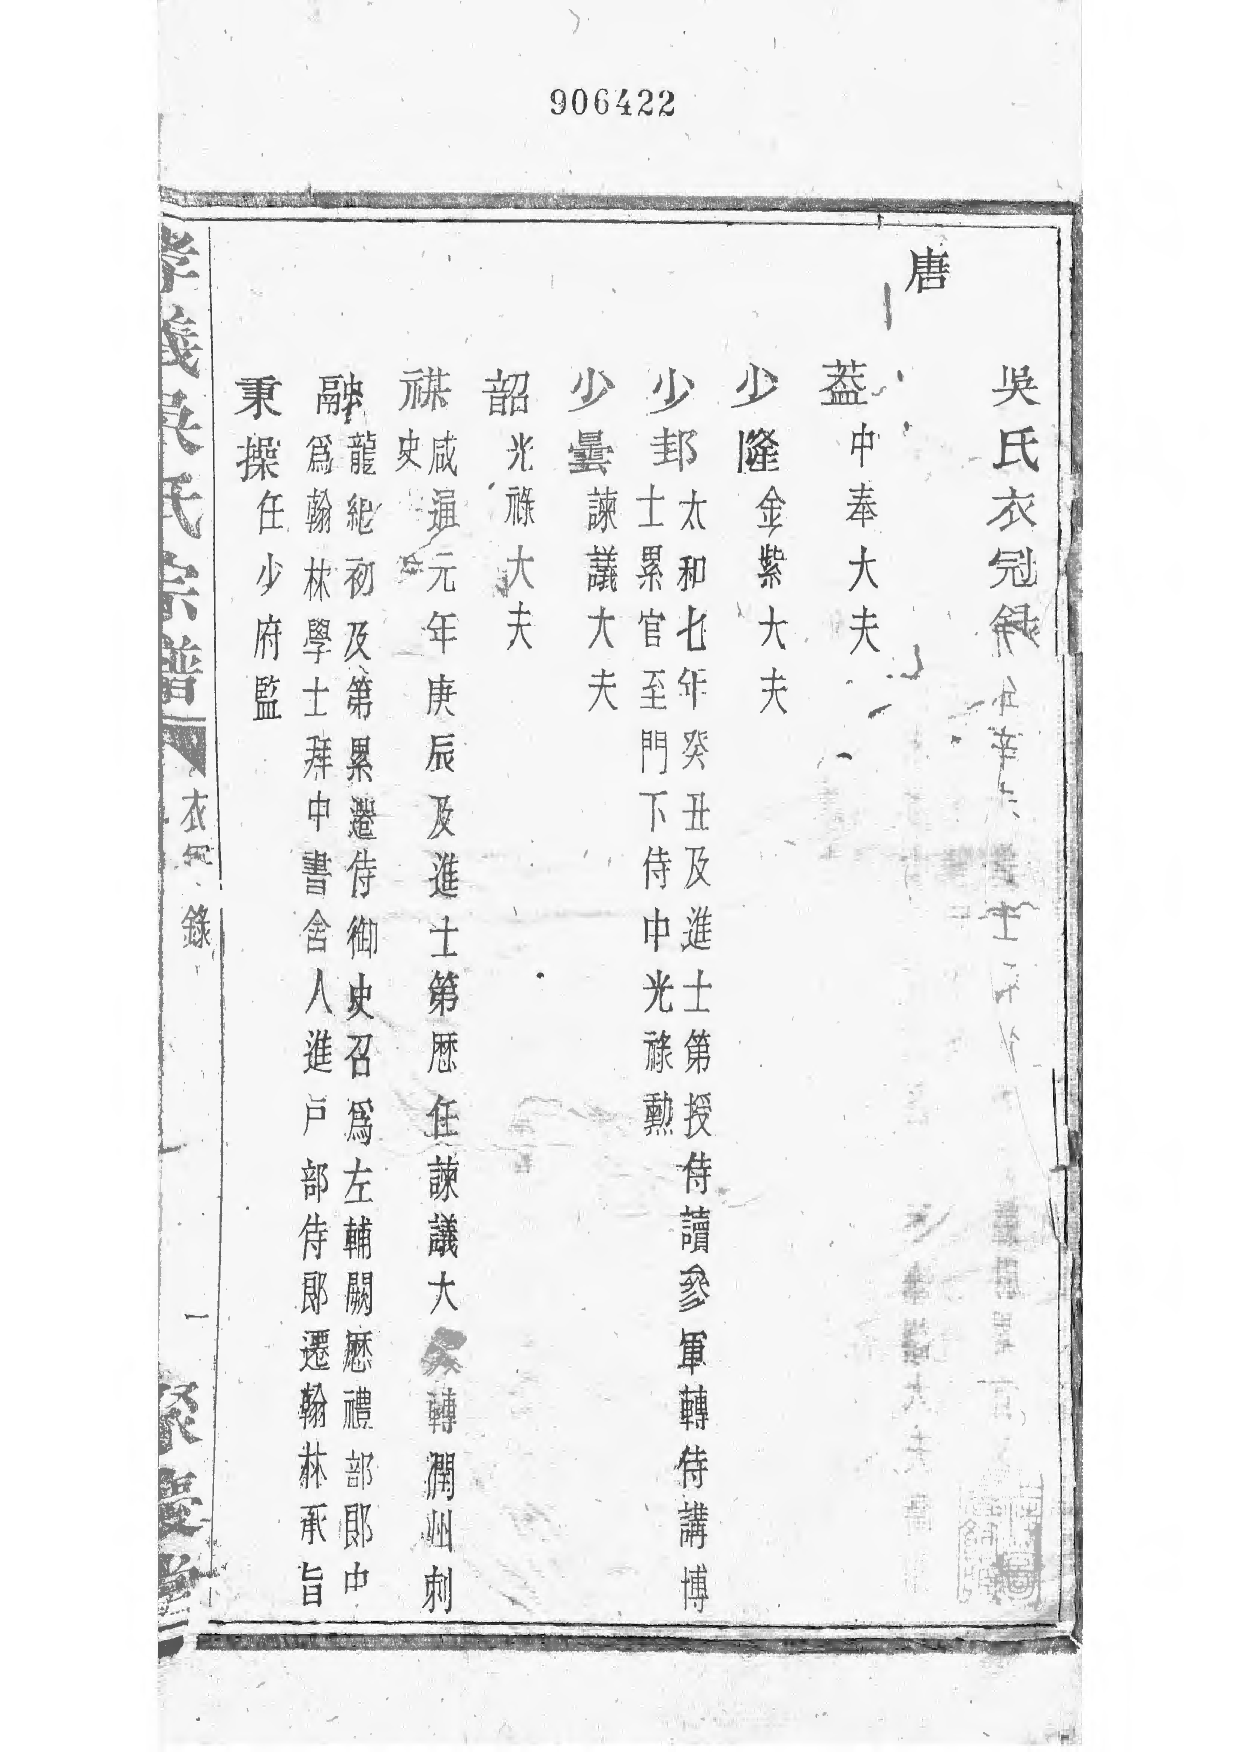 906422
吳氏衣冠錄
唐
葢 中奉大夫
少隆 金紫大夫
少邽 太和七年癸丑及進士第授侍讀參軍轉侍講博
士累官至門下侍中光祿勲
少曇 諫議大夫
韶 光祿大夫
禖 咸通元年庚辰及進士第歴任諫議大夫轉潤州刺
史
融 龍紀初及第累遷侍御史召爲左輔闕歴禮部郎中
爲翰林學士拜中書舍人進戸部侍郎遷翰林承旨
秉操 任少府監
孝義吳氏宗譜
衣冠錄
一
聚慶堂